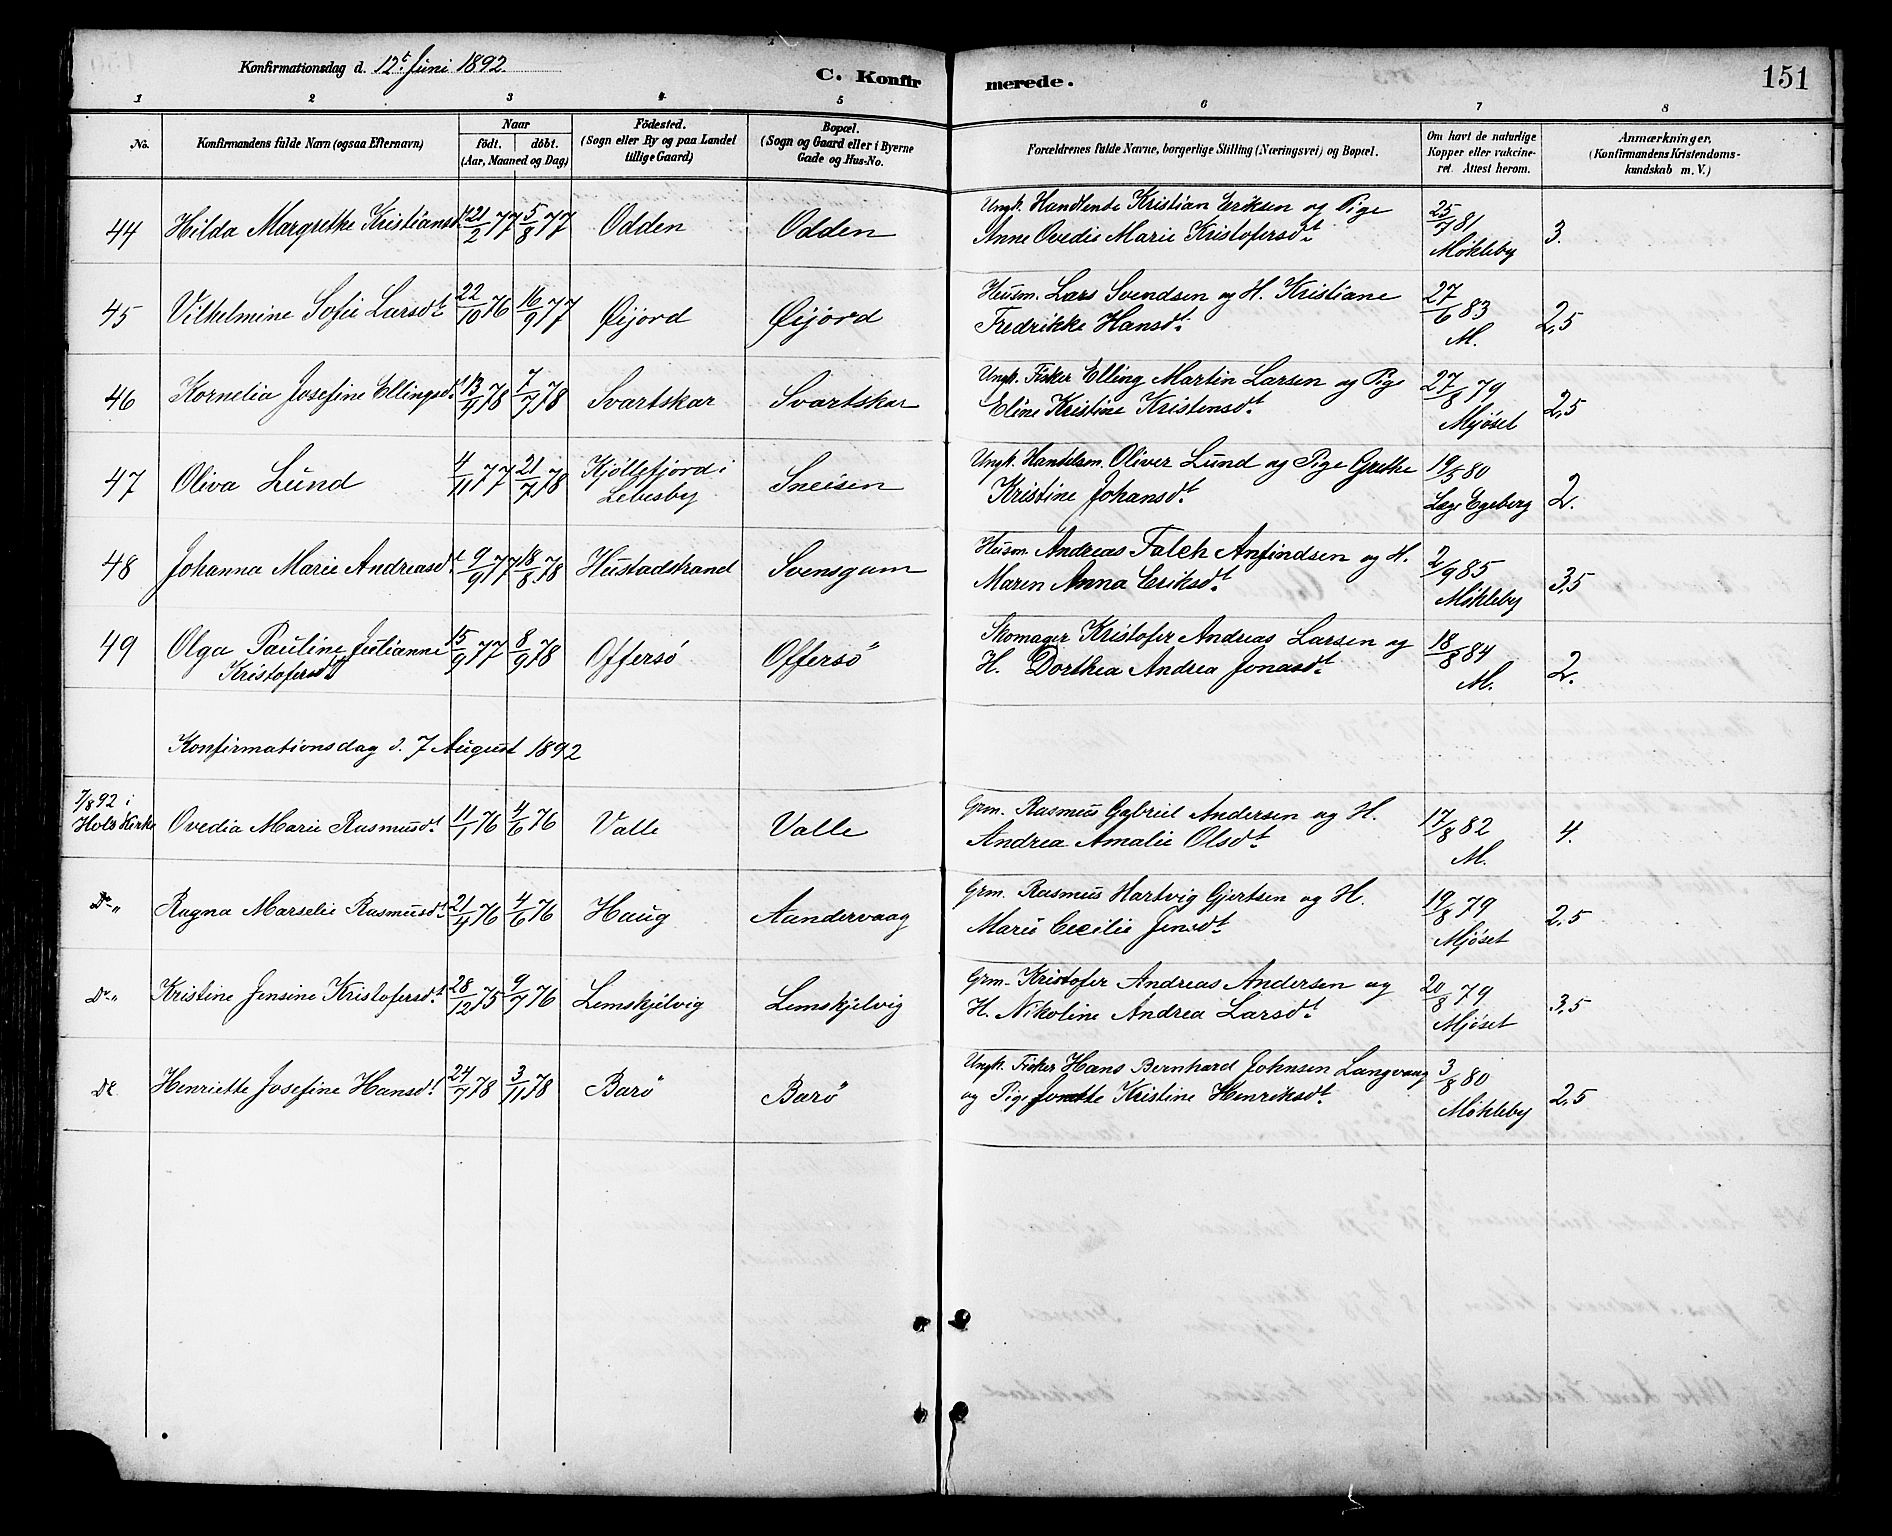 Konfirmationsdag d. 12t Juni 1892
C. Konfir
merede.
151
1 2 3 4 5 6 7 8
No.
Konfirmandens fulde Navn (ogsaa Efternavn)
Naar
födt. döbt.
(Aar, Maaned og Dag)
Födested.
(Sogn eller By og paa Landet
tillige Gaard)
Bopæl.
(Sogn og Gaard eller i Byerne
Gade og Hus-No.
Forældrenes fulde Navne, borgerlige Stilling (Næringsvei) og Bopæl.
Om havt de naturlige
Kopper eller vakcine-
ret. Attest herom.
Anmærkninger,
(Konfirmandens Kristendoms-
kundskab m. V.)
44 Hilda Margrethe Kristiansdt 21/2 77 5/8 77 Odden Odden Ungk. Handlende Kristian Eriksen og Pige
Anne Ovedie Marie Kristofersdt 25/7 81
Møkleby 3.
45 Vilhelmine Sofie Larsdt 22/10 76 16/9 77 Øijord Øijord Husm. Lars Svendsen og H. Kristiane
Fredrikke Hansdt 27/6 83
M. 2,5
46 Kornelia Josefine Ellingsdt 13/9 78 7/7 78 Svartskar Svartskar Ungk. Fisker Elling Martin Larsen og Pige
Eline Kristine Kristensdt 27/8 79
Mjøset 2,5
47 Oliva Lund 4/11 77 21/7 78 Kjøllefjord i
Lebesby Sneisen Ungk. Handelsm. Oliver Lund og Pige Grethe
Kristine Johansdt 19/5 80
Læge Egeberg 2.
48 Johanna Marie Andreasdt 9/9 77 18/8 78 Hustadstrand Svensgam Husm. Andreas Falch Anfindsen og H.
Maren Anna Eriksdt 2/9 85
Møkleby 3,5
49 Olga Pauline Julianne
Kristofersdt 15/9 77 8/9 78 Offersö Offersö Skomager Kristofer Andreas Larsen og
H. Dorthea Andrea Jonasdt 18/8 84
M. 2.
Konfirmationsdag d. 7 August 1892
7/8 92 i
Hols Kirke Ovedia Marie Rasmusdt 11/1 76 4/6 76 Valle Valle Grm. Rasmus Gabriel Andersen og H.
Andrea Amalie Olsdt 17/8 82
M. 4.
Do „ Ragna Marselie Rasmusdt 21/4 76 4/6 76 Haug Aandervaag Grm. Rasmus Hartvig Gjertsen og H.
Marie Cecilie Jensdt 19/8 79
Mjøset 2,5
Do „ Kristine Jensine Kristofersdt 28/12 75 9/7 76 Lemskjelvig Lemskjelvig Grm. Kristofer Andreas Andersen og
H. Nikoline Andrea Larsdt 20/8 79
Mjøset 3,5
Do Henriette Josefine Hansdt 24/7 78 3/11 78 Barö Barö Ungk. Fisker Hans Bernhard Johnsen Langvaag
og Pige Jonette Kristine Henriksdt 3/8 80
Møkleby 2,5